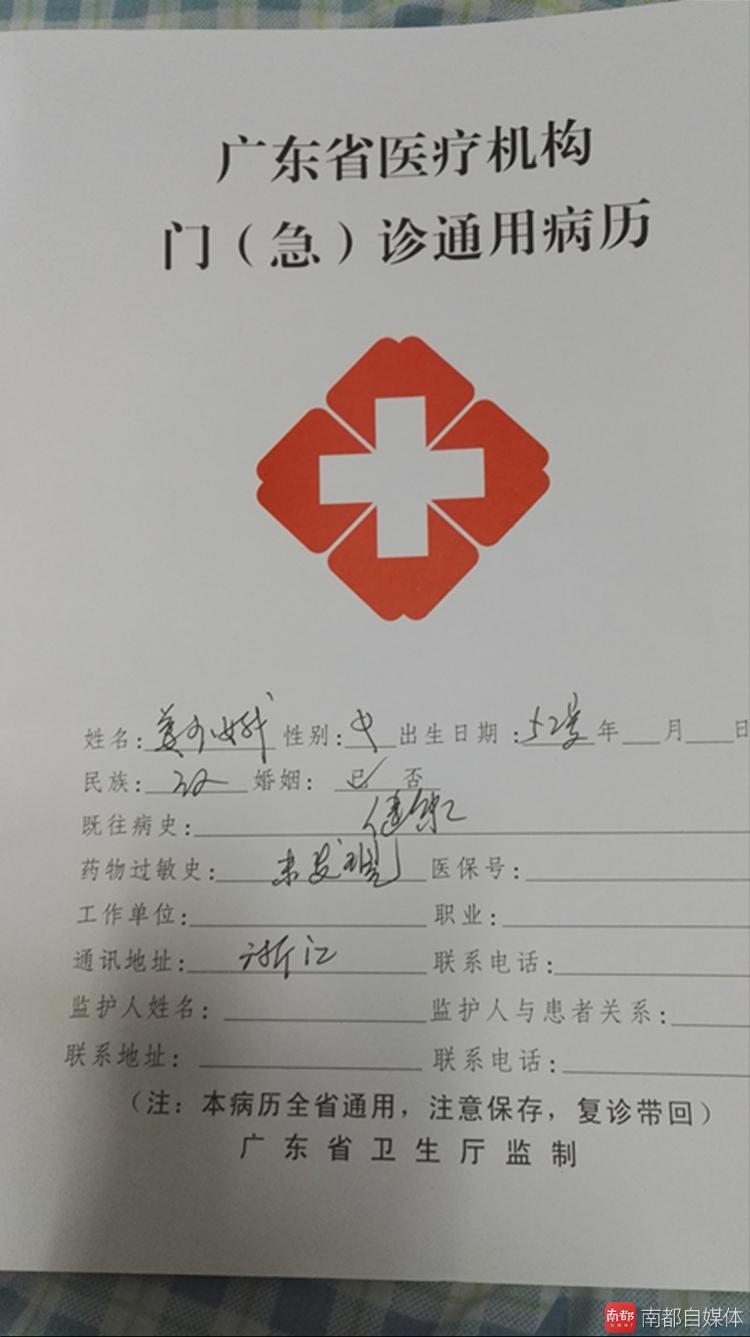 广东省医疗机构
门（急）诊通用病历
姓名：姜 性别：女 出生日期：52岁 年 月 日
民族：汉 婚姻：已✓ 否
既往病史：健康
药物过敏史：未发现 医保号：
工作单位： 职业：
通讯地址：浙江 联系电话：
监护人姓名： 监护人与患者关系：
联系地址： 联系电话：
（注：本病历全省通用，注意保存，复诊带回）
广东省卫生厅监制
南都
南都自媒体